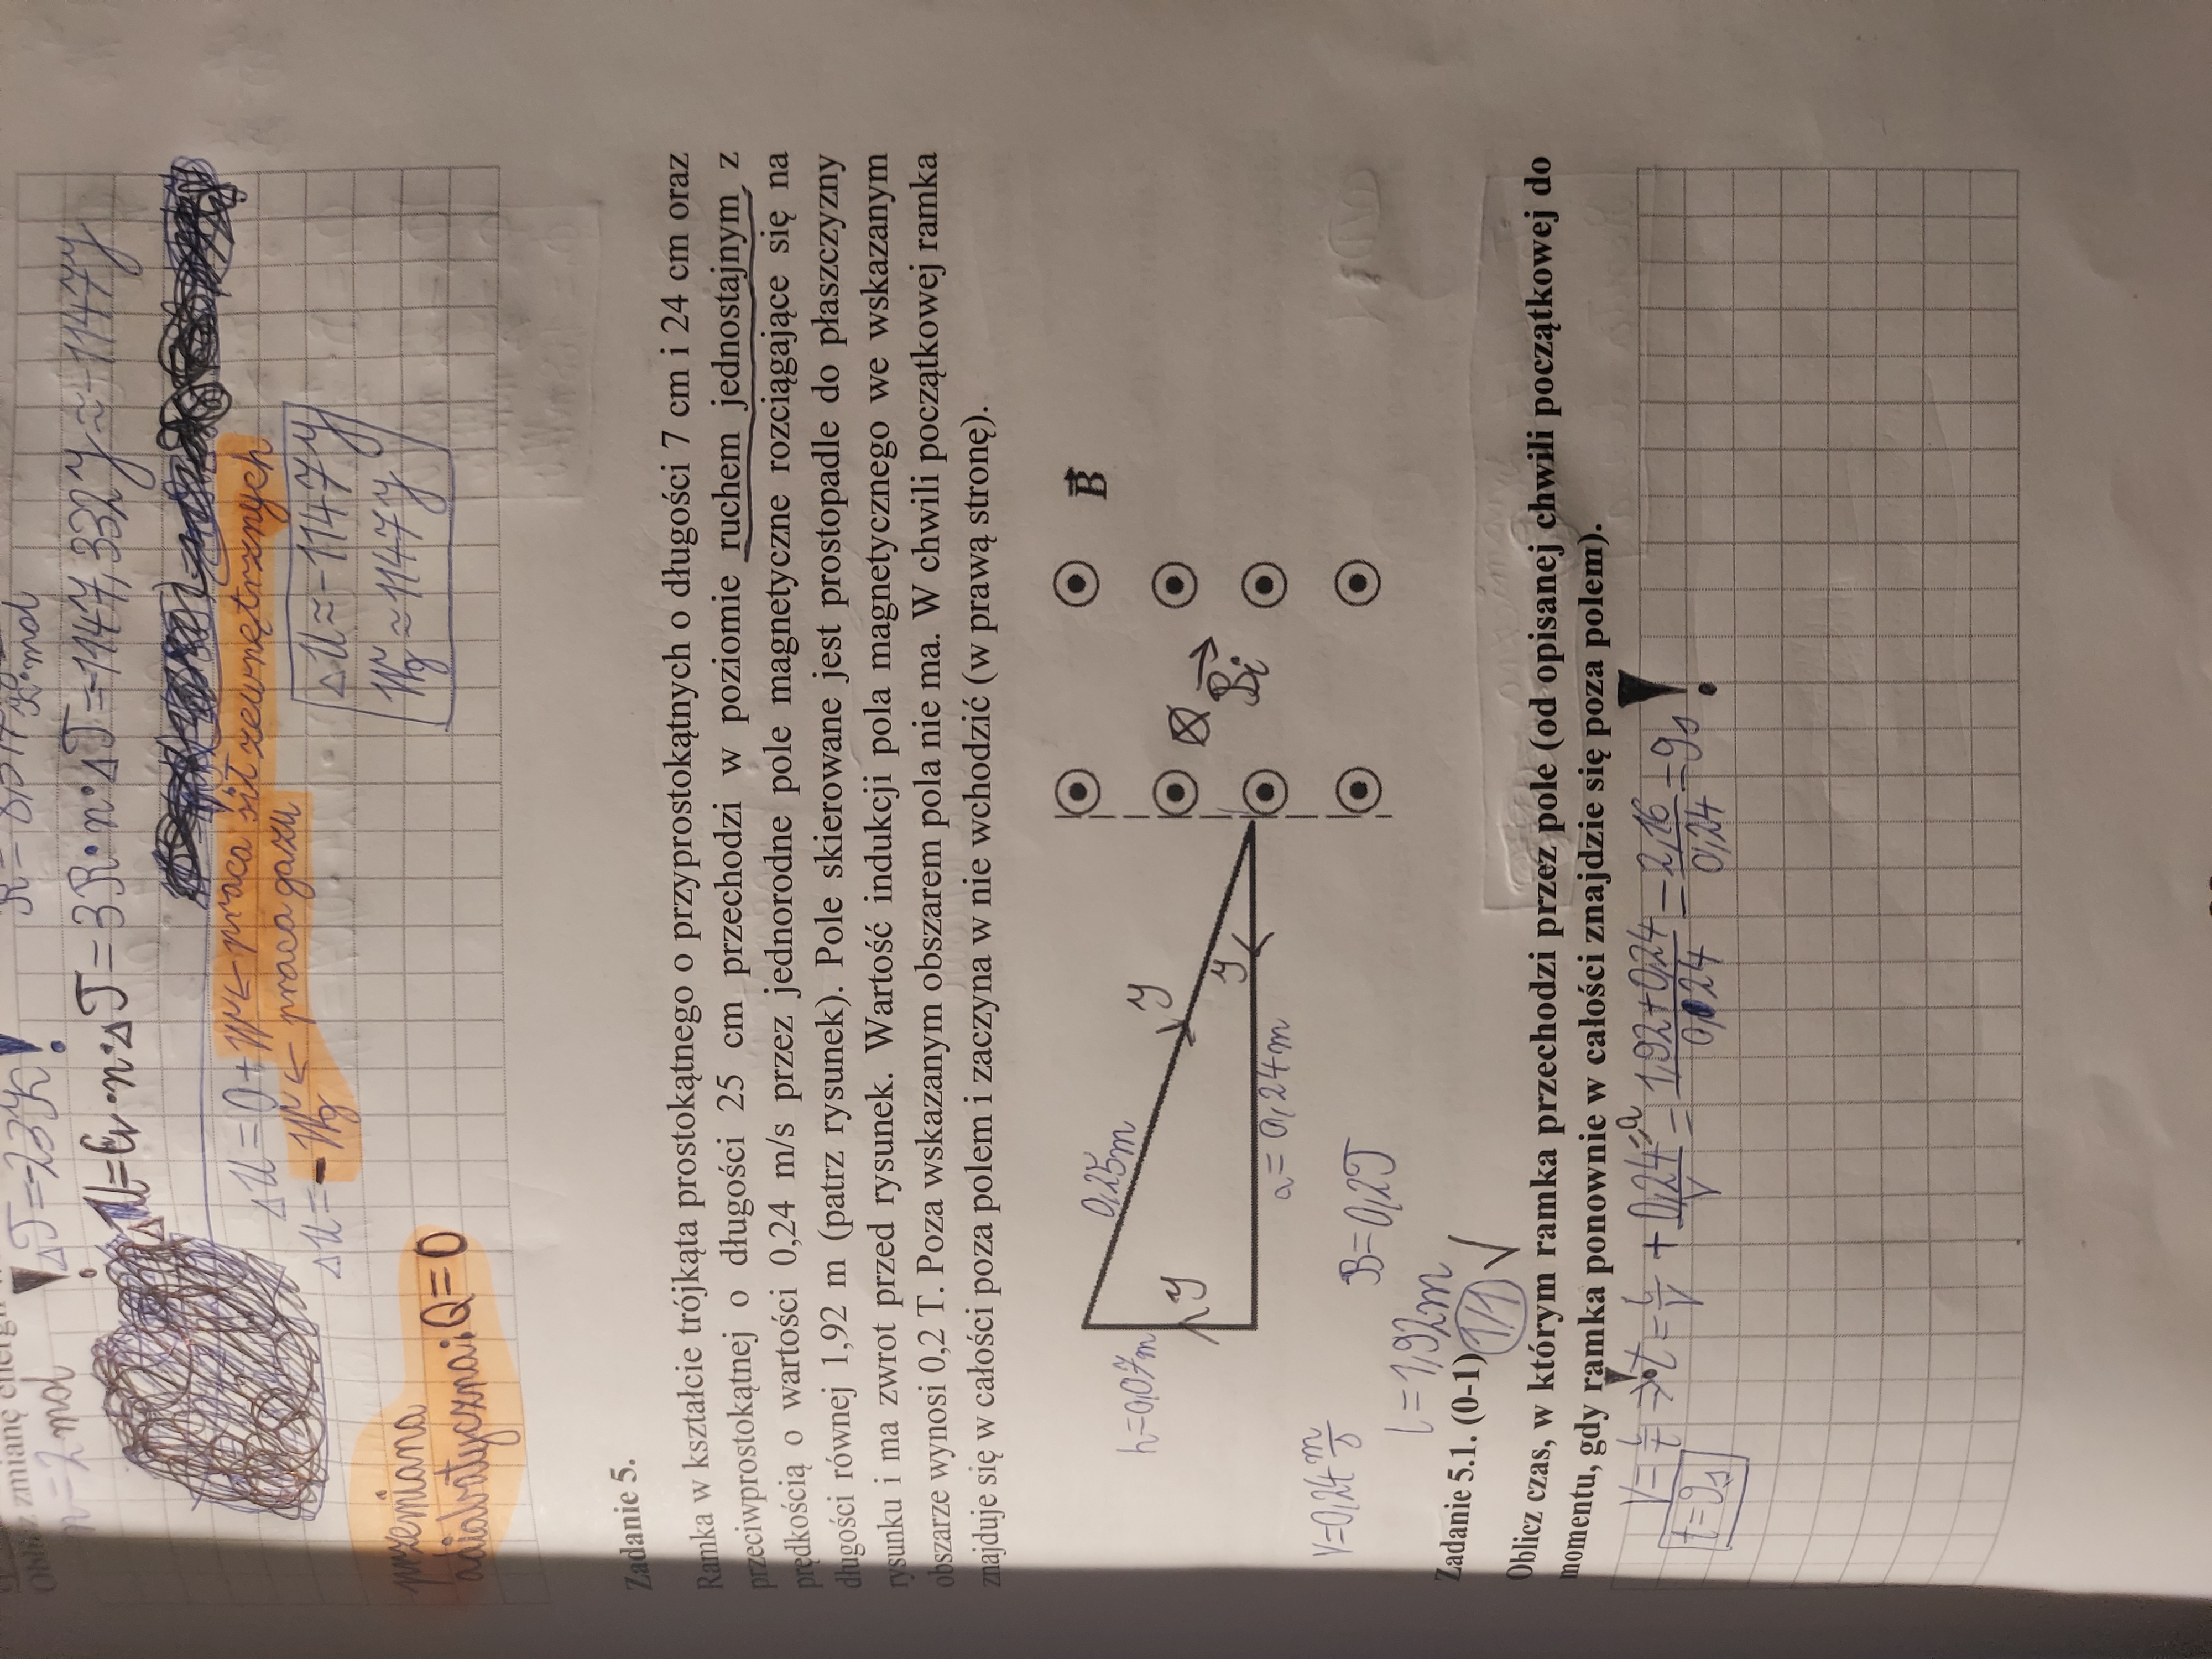 zmianę
n=2 mol
ΔT=-23K!
ΔU=Cv·n·ΔT=3R·n·ΔT=-1147,332J≈-1147J
ΔU=Q+W← praca sił zewnętrznych
ΔU=-Wg← praca gazu
ΔU≈-1147J
Wg≈1147J
przemiana
adiabatyczna: Q=0
Zadanie 5.
Ramka w kształcie trójkąta prostokątnego o przyprostokątnych o długości 7 cm i 24 cm oraz
przeciwprostokątnej o długości 25 cm przechodzi w poziomie ruchem jednostajnym z
prędkością o wartości 0,24 m/s przez jednorodne pole magnetyczne rozciągające się na
długości równej 1,92 m (patrz rysunek). Pole skierowane jest prostopadle do płaszczyzny
rysunku i ma zwrot przed rysunek. Wartość indukcji pola magnetycznego we wskazanym
obszarze wynosi 0,2 T. Poza wskazanym obszarem pola nie ma. W chwili początkowej ramka
znajduje się w całości poza polem i zaczyna w nie wchodzić (w prawą stronę).
B
0,25m
h=0,07m
a=0,24m
Bi
v=0,24 m/s
B=0,2T
l=1,92m
Zadanie 5.1. (0-1) 1/1 ✓
Oblicz czas, w którym ramka przechodzi przez pole (od opisanej chwili początkowej do
momentu, gdy ramka ponownie w całości znajdzie się poza polem).
V=l/t → t=l/V + 0,24=a/V = 1,92+0,24/0,24 = 2,16/0,24 = 9s!
t=9s